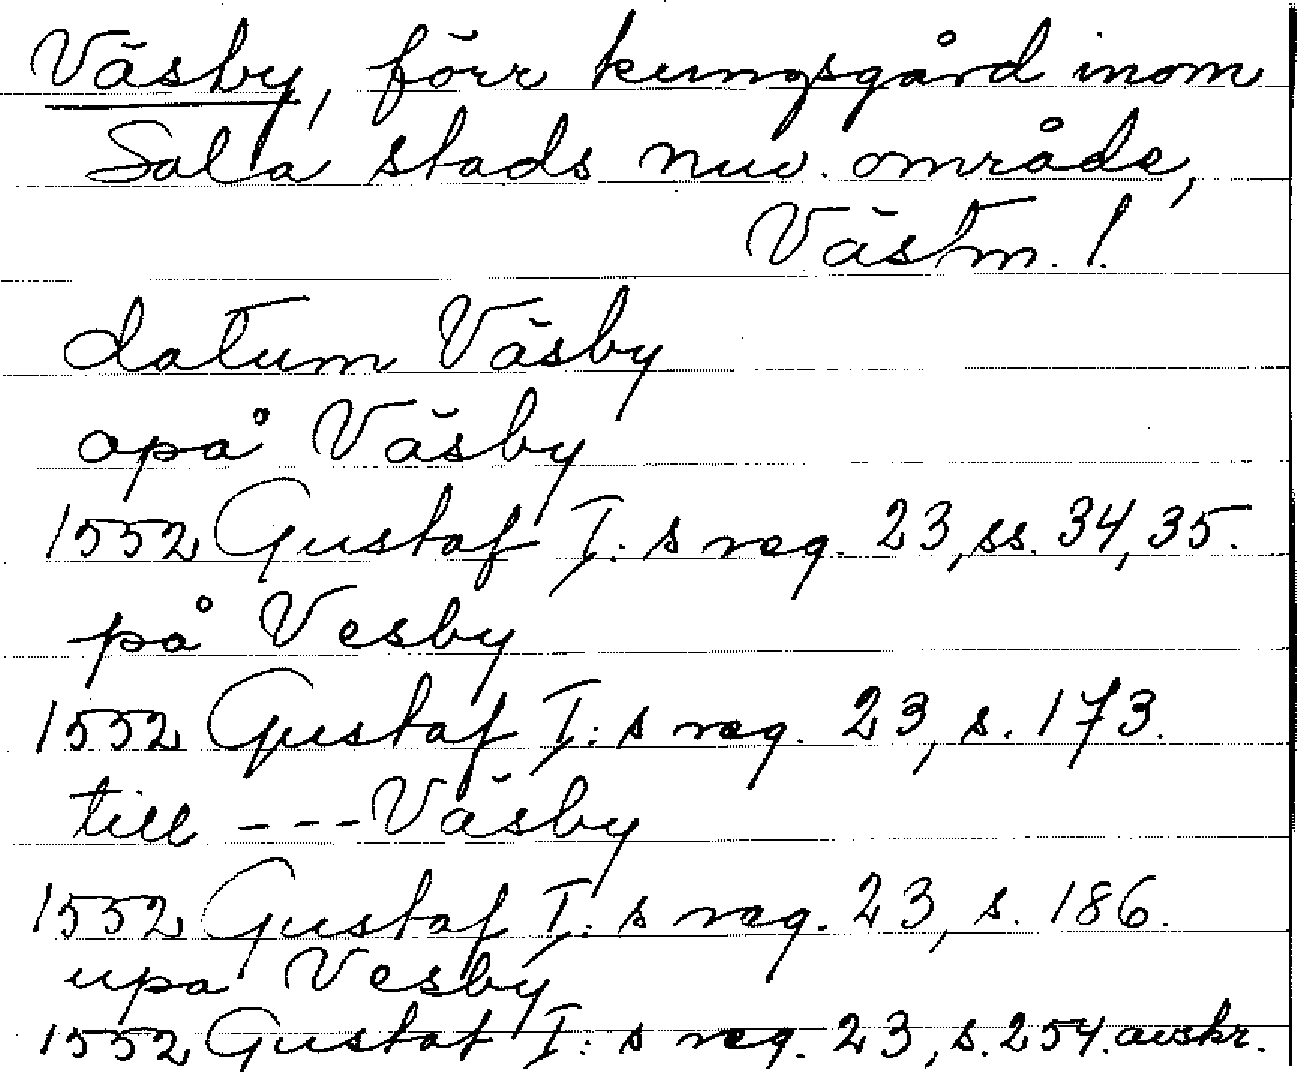 Väsby, förr kungsgård inom
Sala stads nuv. område,
Västm. l.
datum Väsby
opå Väsby
1552 Gustaf I:s reg. 23, ss. 34, 35.
på Vesby
1552 Gustaf I:s reg. 23, s. 173.
till --- Väsby
1552 Gustaf I:s reg. 23, s. 186.
upa Vesby
1552 Gustaf I:s reg. 23, s. 254. avskr.